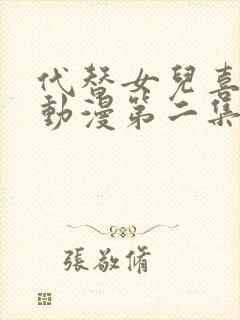 代替女兒喜
動漫第二集
張敬脩